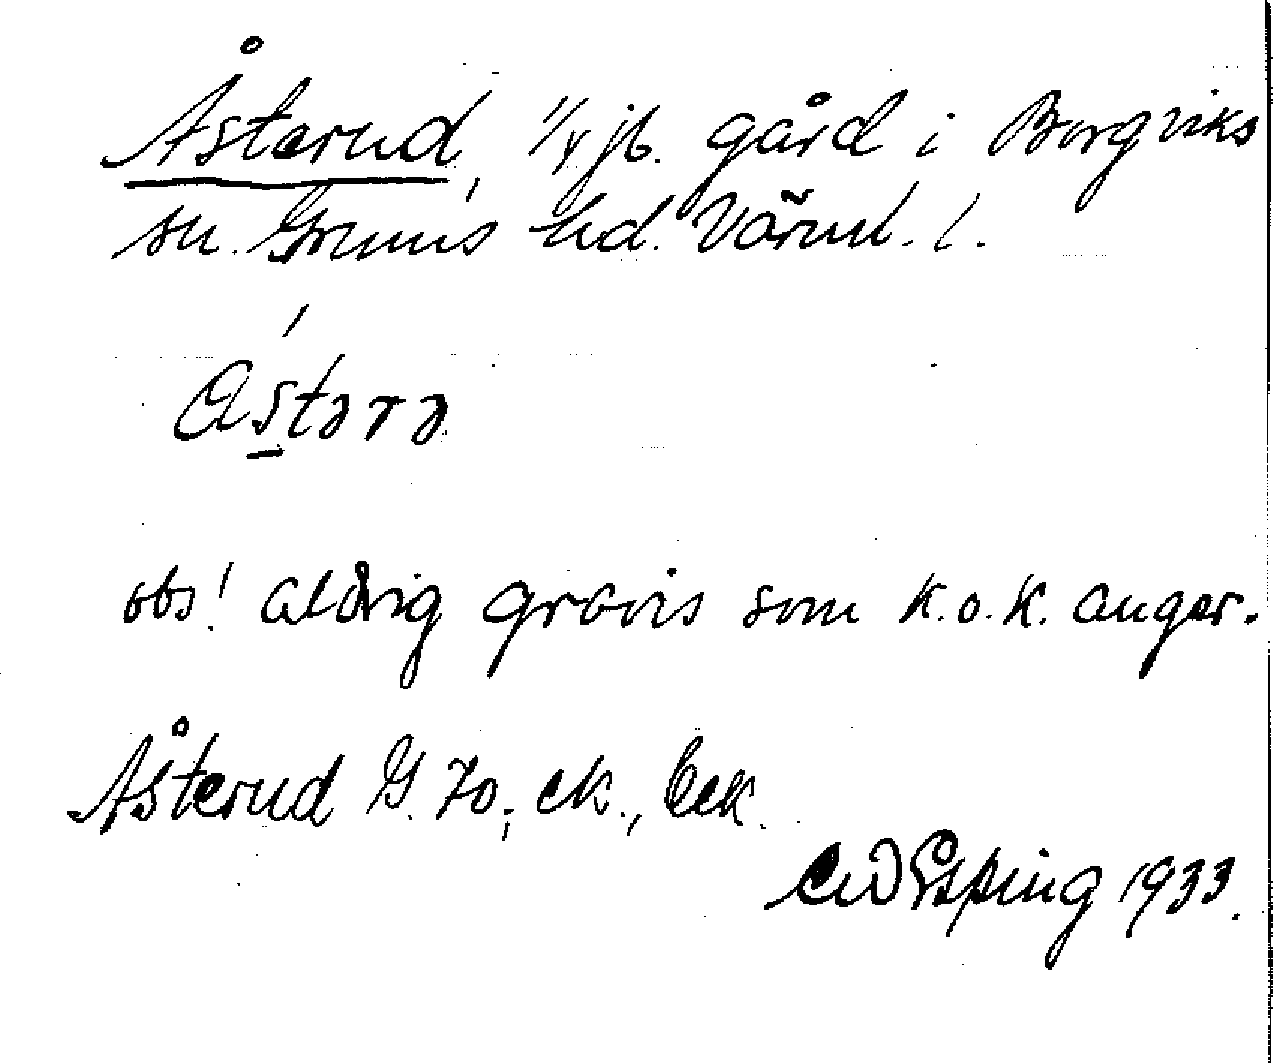 Åsterud, 1/4 jb. gård i Borgviks
sn. Grums hd. Värml. l.
ástərə
obs! aldrig gravis som K.o.K. anger.
Åsterud G. Jo; ek., Eek.
Espling 1933.